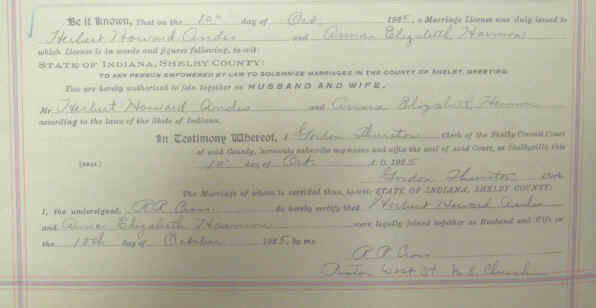 Be it Known, That on the 10th day of Oct 1925, a Marriage License was duly issued to
Herbert Howard Andis and Anna Elizabeth Harmon
which License is in words and figures following, to-wit:
STATE OF INDIANA, SHELBY COUNTY:
TO ANY PERSON EMPOWERED BY LAW TO SOLEMNIZE MARRIAGES IN THE COUNTY OF SHELBY, GREETING
You are hereby authorized to join together as HUSBAND AND WIFE,
Mr. Herbert Howard Andis and Anna Elizabeth Harmon
according to the laws of the State of Indiana.
In Testimony Whereof, I Gordon Thurston Clerk of the Shelby Circuit Court
of said County, hereunto subscribe my name and affix the seal of said Court, at Shelbyville this
[SEAL] 10th day of Oct A. D. 1925
Gordon Thurston Clerk
The Marriage of whom is certified thus, to-wit: STATE OF INDIANA, SHELBY COUNTY:
I, the undersigned, R.R. Cross do hereby certify that Herbert Howard Andis
and Anna Elizabeth Harmon were legally joined together as Husband and Wife on
the 10th day of October 1925, by me
R R Cross
West St M. E. Church